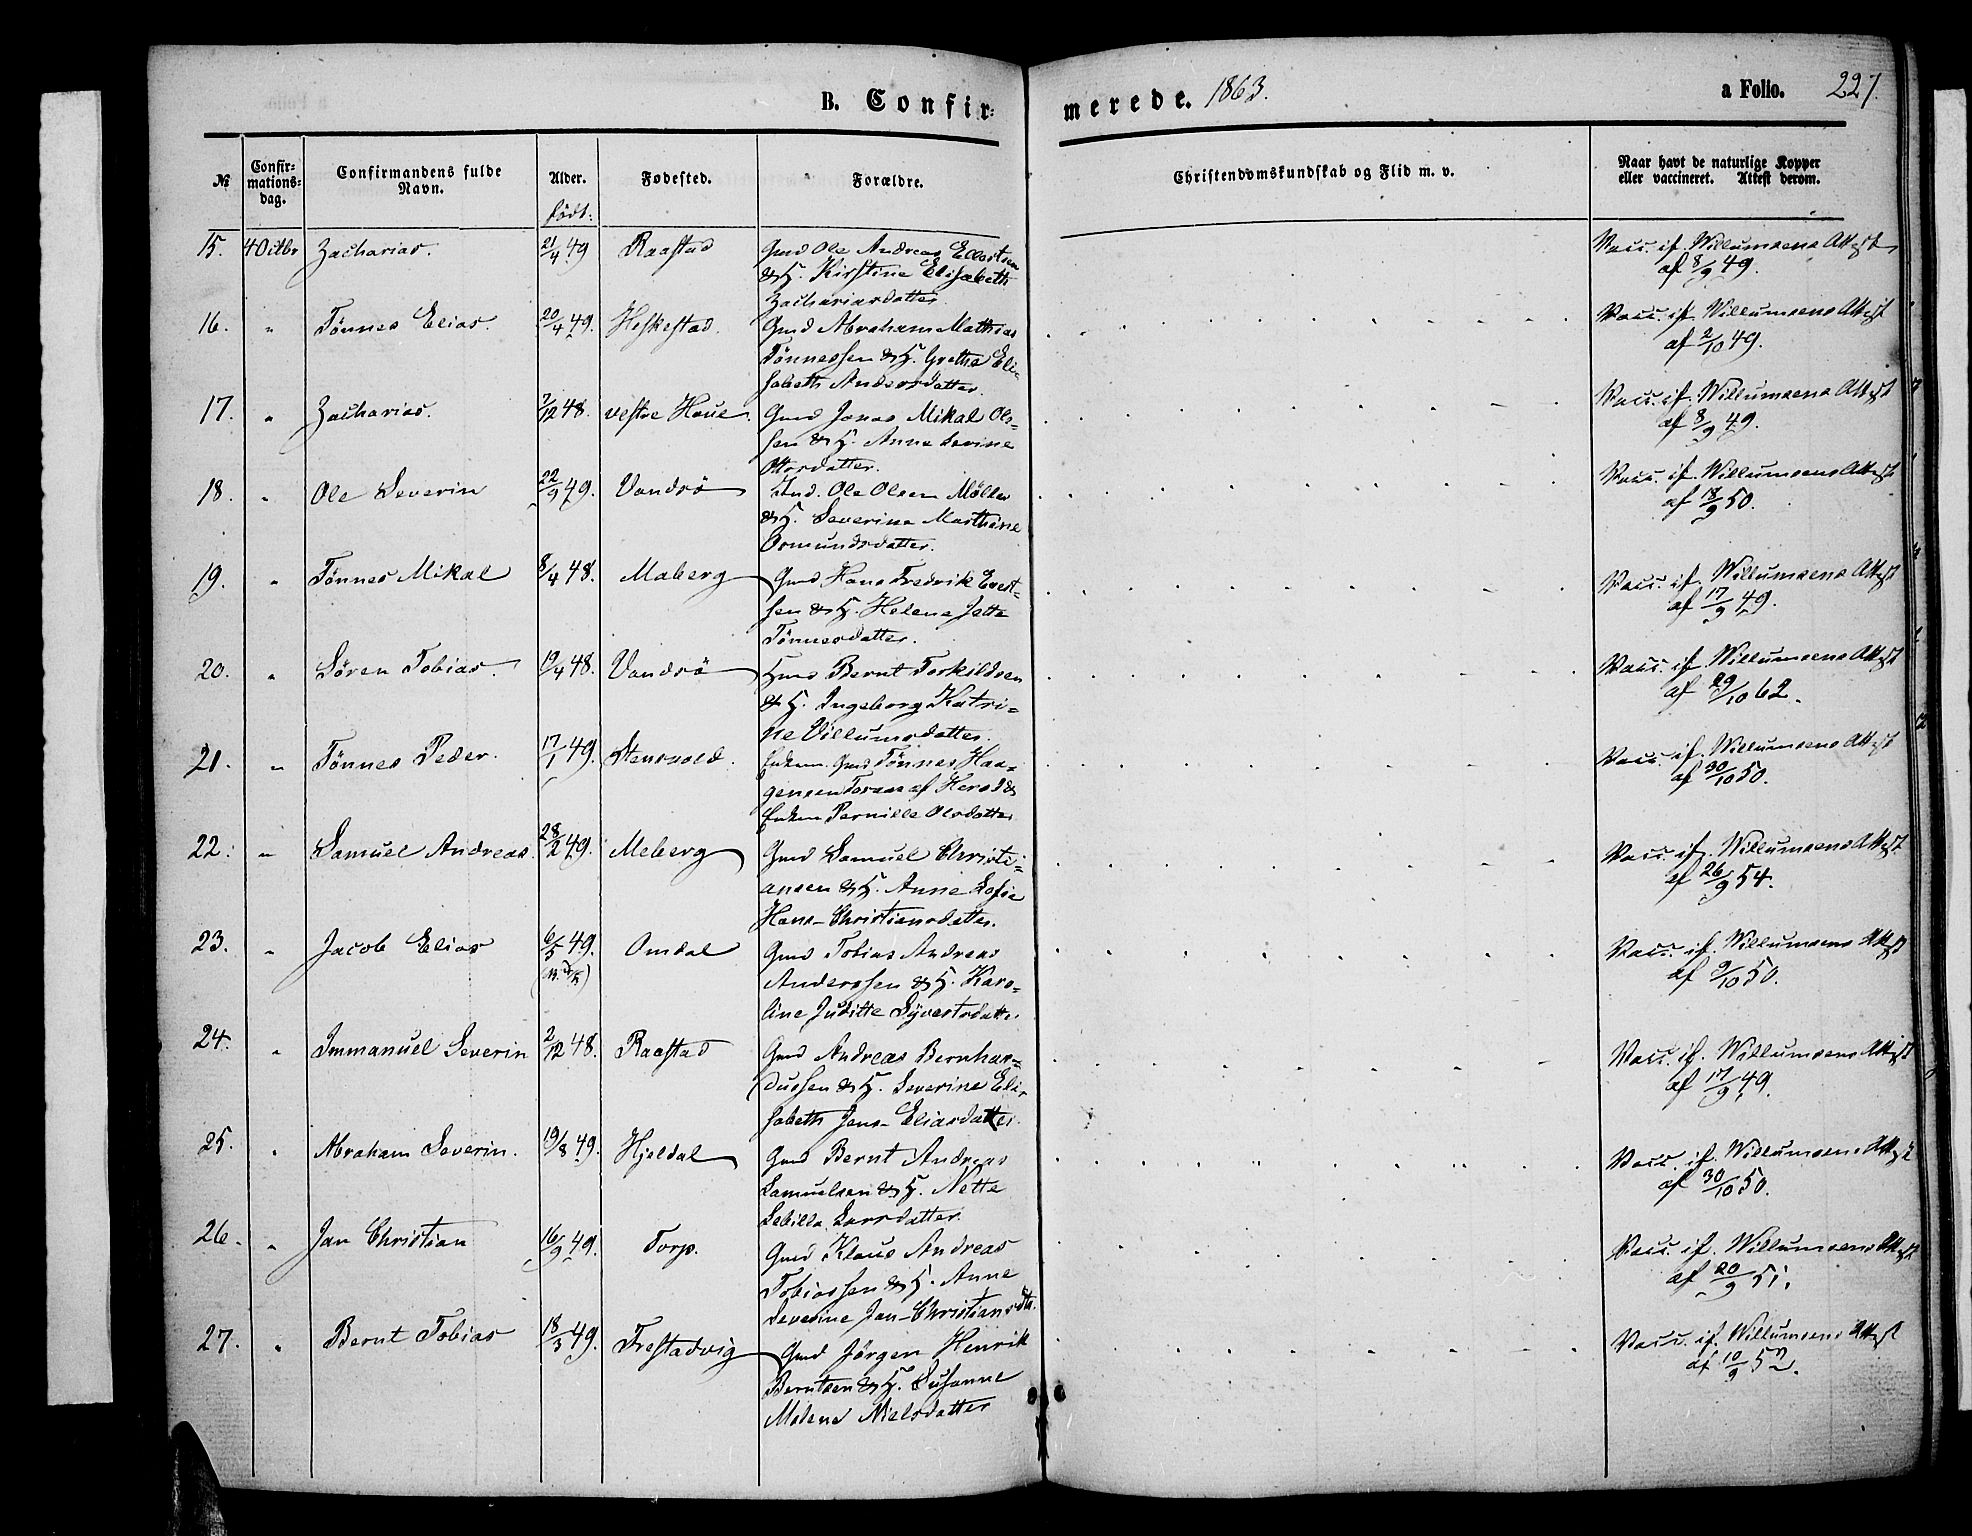 B. Confir-
merede. 1863.
a Folio. 227.
№
Confir-
mations-
dag.
Confirmandens fulde
Navn.
Alder.
født:
Fødested.
Forældre.
Christendomskundskab og Flid m. v.
Naar havt de naturlige Kopper
eller vaccineret. Attest derom.
15. 4 Octbr Zacharias. 21/4 49 Raastad Gmd Ole Andreas Ellertsen
& H. Kirstine Elisabeth
Zachariasdatter.
Vacc. if. Willumsens Attest
af 8/9 49.
16. " Tönnes Elias. 20/4 49. Heskestad. Gmd Abraham Mathias
Tönnessen & H. Grethe Eli-
sabeth Andersdatter.
Vacc. if. Willumsens Attest
af 2/10 49.
17. " Zacharias. 7/12 48. vestre Haue. Gmd Jonas Mikal Ols-
sen & H. Anne Levine
Ottosdatter.
Vacc. if. Willumsens Attest
af 8/9 49.
18. " Ole Severin 22/9 49. Vandsö Ind. Ole Olsen Möller
& H. Severine Marthine
Osmundsdatter.
Vacc. if. Willumsens Attest
af 18/9 50.
19. " Tönnes Mikal 8/4 48. Maberg Gmd Hans Fredrik Evert-
sen & H. Helene Jette
Tönnesdatter.
Vacc. if. Willumsens Attest
af 17/9 49.
20. " Sören Tobias. 19/4 48. Vandsö Hmd Bernt Torkildsen
& H. Ingeborg Katri-
ne Villumsdatter.
Vacc. if. Willumsens Attest
af 29/10 62.
21. " Tönnes Peder. 17/1 49. Stensvold. Gmd Tönnes Haa-
gensen af Herad &
Enken Pernille Olsdatter
Vacc. if. Willumsens Attest
af 30/10 50.
22. " Samuel Andreas. 28/2 49. Meberg Gmd Samuel Christi-
ansen & H. Anne Sofie
Hans-Christiansdatter.
Vacc. if. Willumsens Attest
af 26/9 54.
23. " Jacob Elias 6/5 49. Omdal Gmd Tobias Andreas
Anderssen & H. Karo-
line Juditte Syvertsdatter
Vacc. if. Willumsens Attest
af 9/10 50.
24. " Immanuel Severin 2/12 48. Raastad Gmd Andreas Bernhar-
dussen & H. Severine Eli-
sabeth Jens-Eliasdatter.
Vacc. if. Willumsens Attest
af 17/9 49.
25. " Abraham Severin. 19/8 49. Hjeldal Gmd Bernt Andreas
Samuelsen & H. Nette
Sebille Larsdatter.
Vacc. if. Willumsens Attest
af 30/10 50.
26. " Jan Christian 16/9 49. Torp. Gmd Klaus Andreas
Tobiassen & H. Anne
Severine Jan-Christiansdtr.
Vacc. if. Willumsens Attest
af 20/9 51.
27. " Bernt Tobias 18/3 49. Frestadvig Gmd Jörgen Henrik
Berntsen & H. Susanne
Malene Nielsdatter
Vacc. if. Willumsens Attest
af 10/9 52.